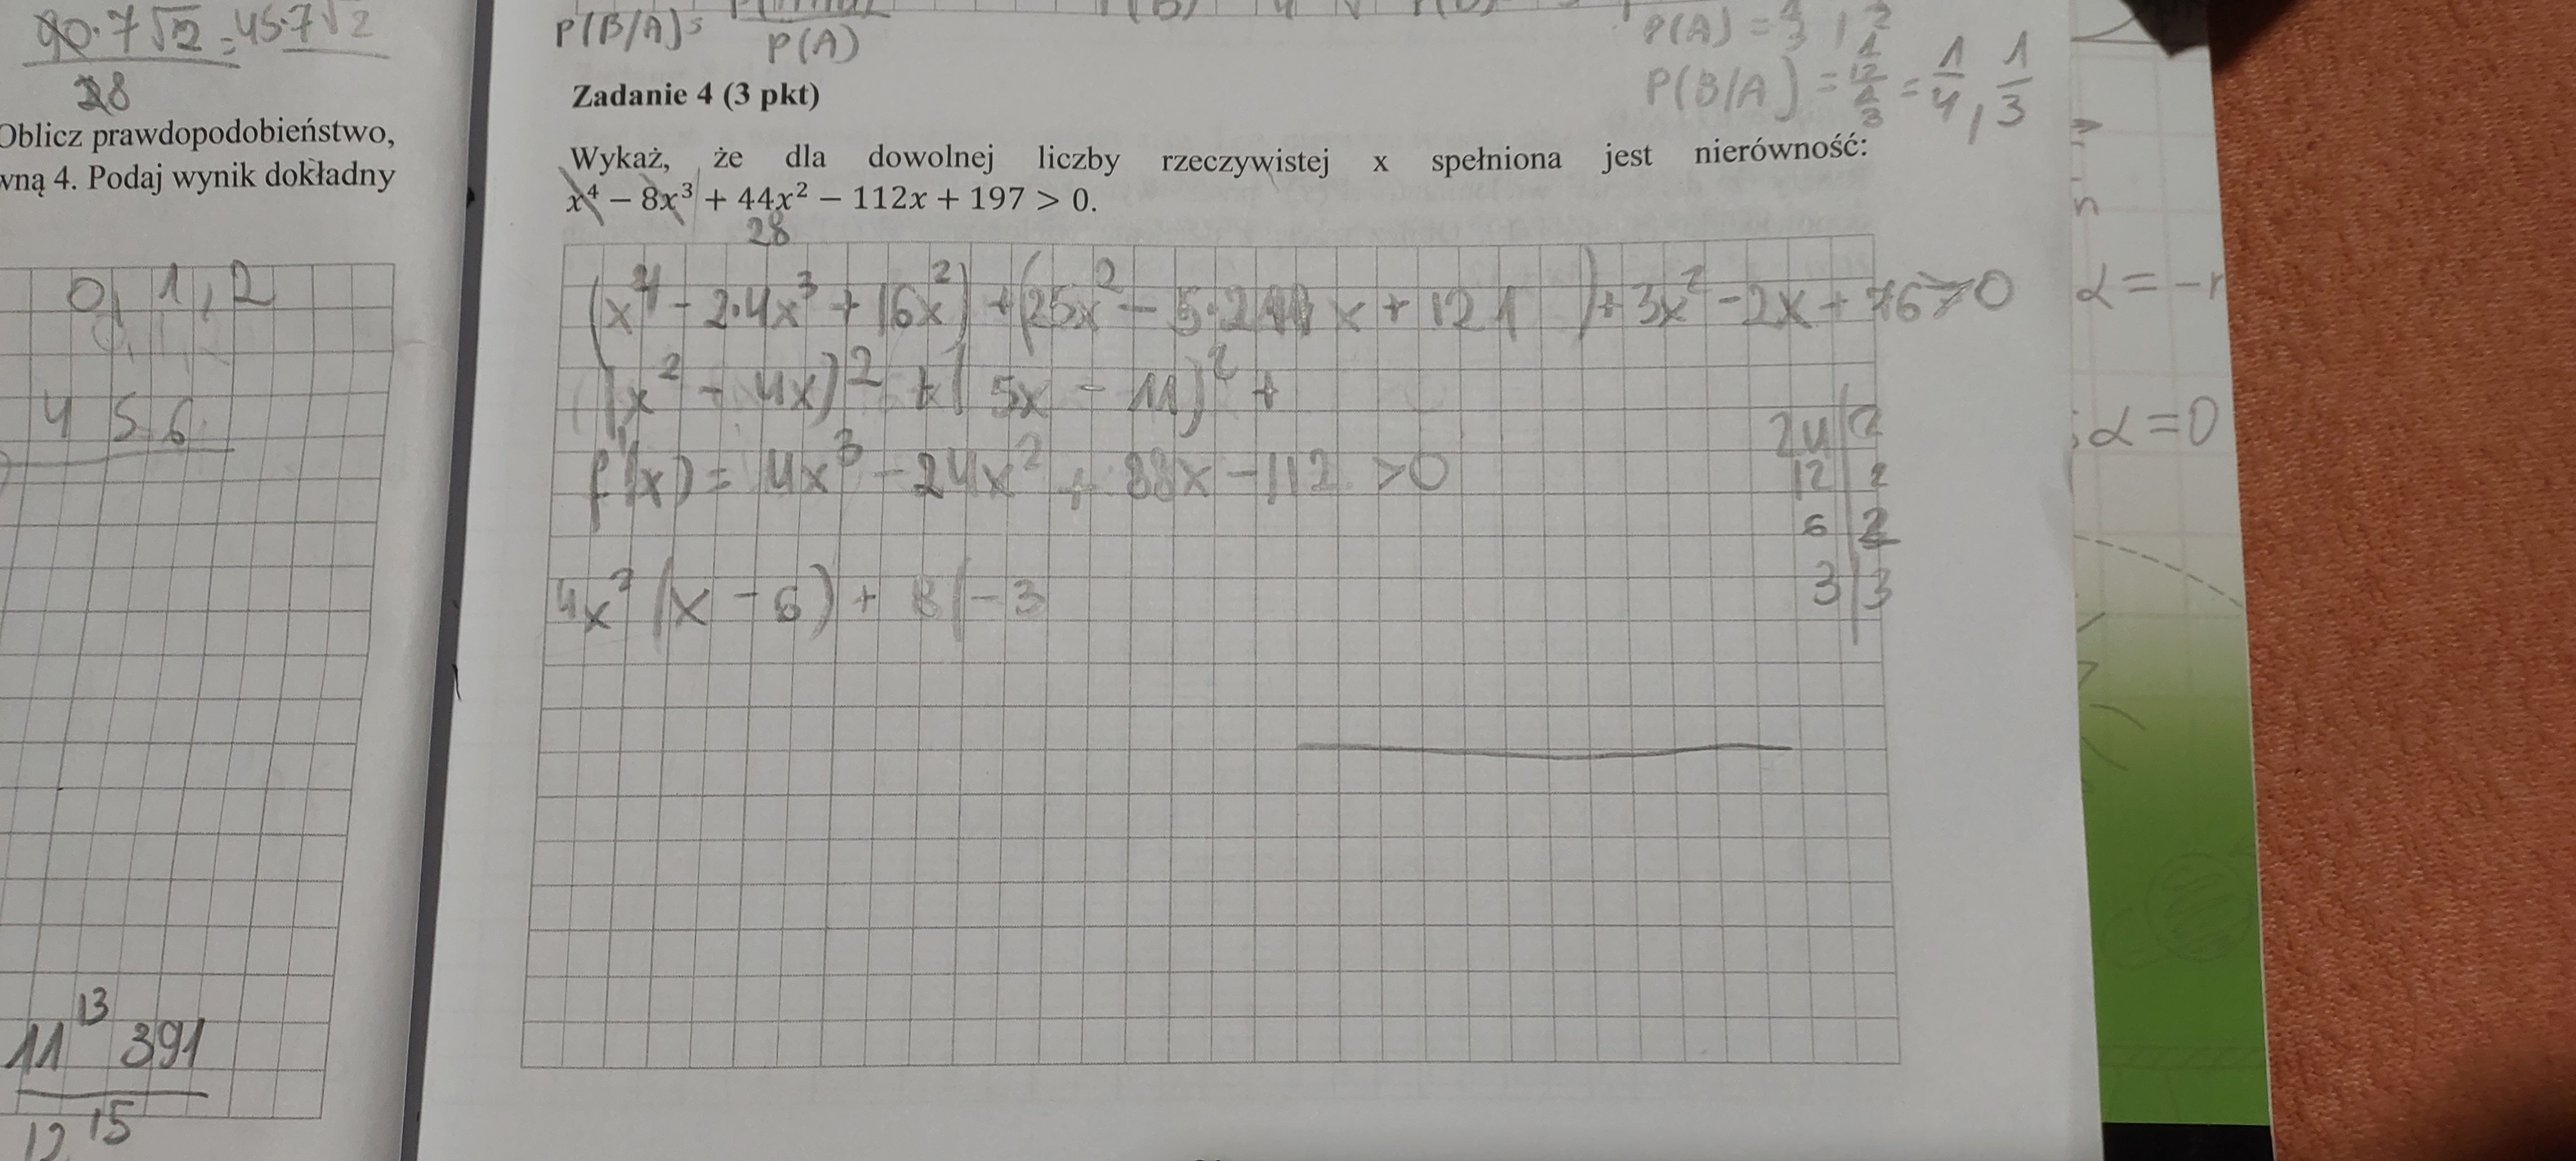 90·7√2 = 45·7√2
28
Oblicz prawdopodobieństwo,
wną 4. Podaj wynik dokładny
0, 1, 2
4 5 6
13
11 391
12 15
P(B/A)=
P(A)
P(A) = 1/3
P(B/A) = = 1/4, 1/3
Zadanie 4 (3 pkt)
Wykaż, że dla dowolnej liczby rzeczywistej x spełniona jest nierówność:
x⁴ − 8x³ + 44x² − 112x + 197 > 0.
28
(x⁴ - 2·4x³ + 16x²) + (25x² - 5·2·11 x + 121 ) + 3x² - 2x + 76 > 0
(x² - 4x)² + (5x - 11)² +
f'(x) = 4x³ - 24x² + 88x - 112 > 0
4x² (x - 6) + 8(-3
24 2
12 2
6 2
3 3
α = -r
; α = 0